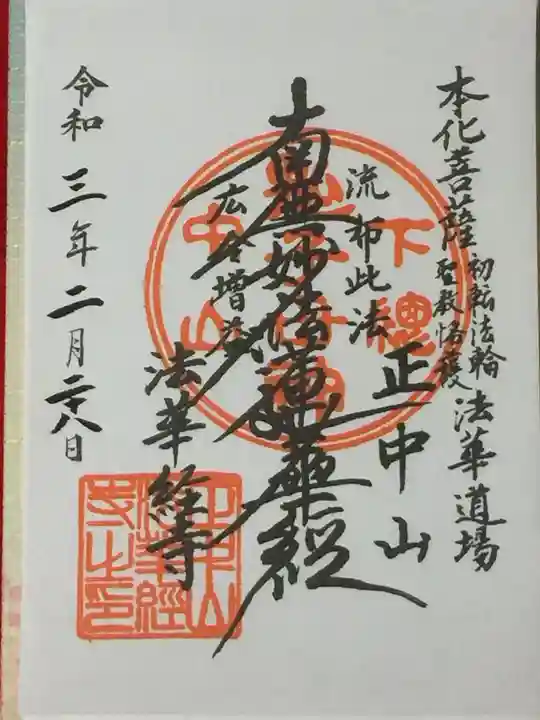 本化菩薩初転法輪聖教恪護法華道場
正中山
流布此法
南無妙法蓮華経
広令増益
法華経寺
令和三年二月二十八日
下總
中山
正中山
法華經
寺之印